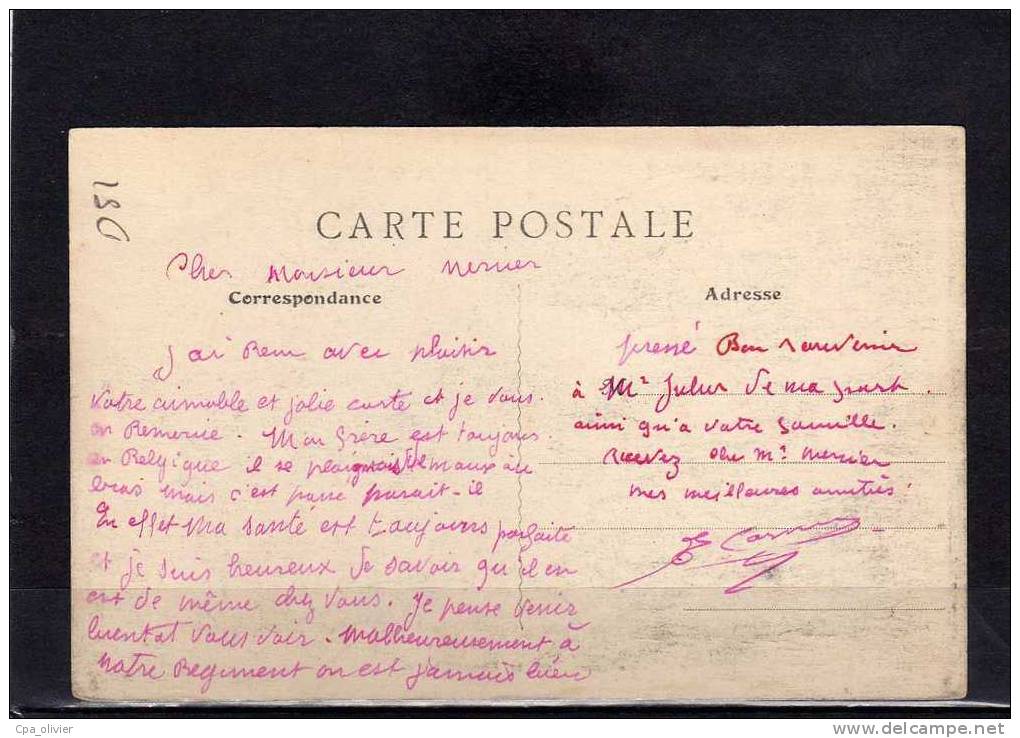 D81
CARTE POSTALE
Cher Monsieur Mercier
Correspondance
J'ai Reçu avec plaisir
votre aimable et jolie carte et je vous
en Remercie. Mon frère est toujours
en Belgique il se plaignait de maux au
bras mais c'est passé parait-il
En effet Ma santé est toujours parfaite
et je suis heureux de savoir qu'il en
est de même chez vous. Je pense venir
bientot vous voir. Malheureusement à
notre Regiment on est jamais
Adresse
pressé Bon souvenir
à Mr Jules de ma part.
ainsi qu'à votre famille.
Recevez cher Mr Mercier
mes meilleures amitiés.
Cpa_olivier
www.delcampe.net